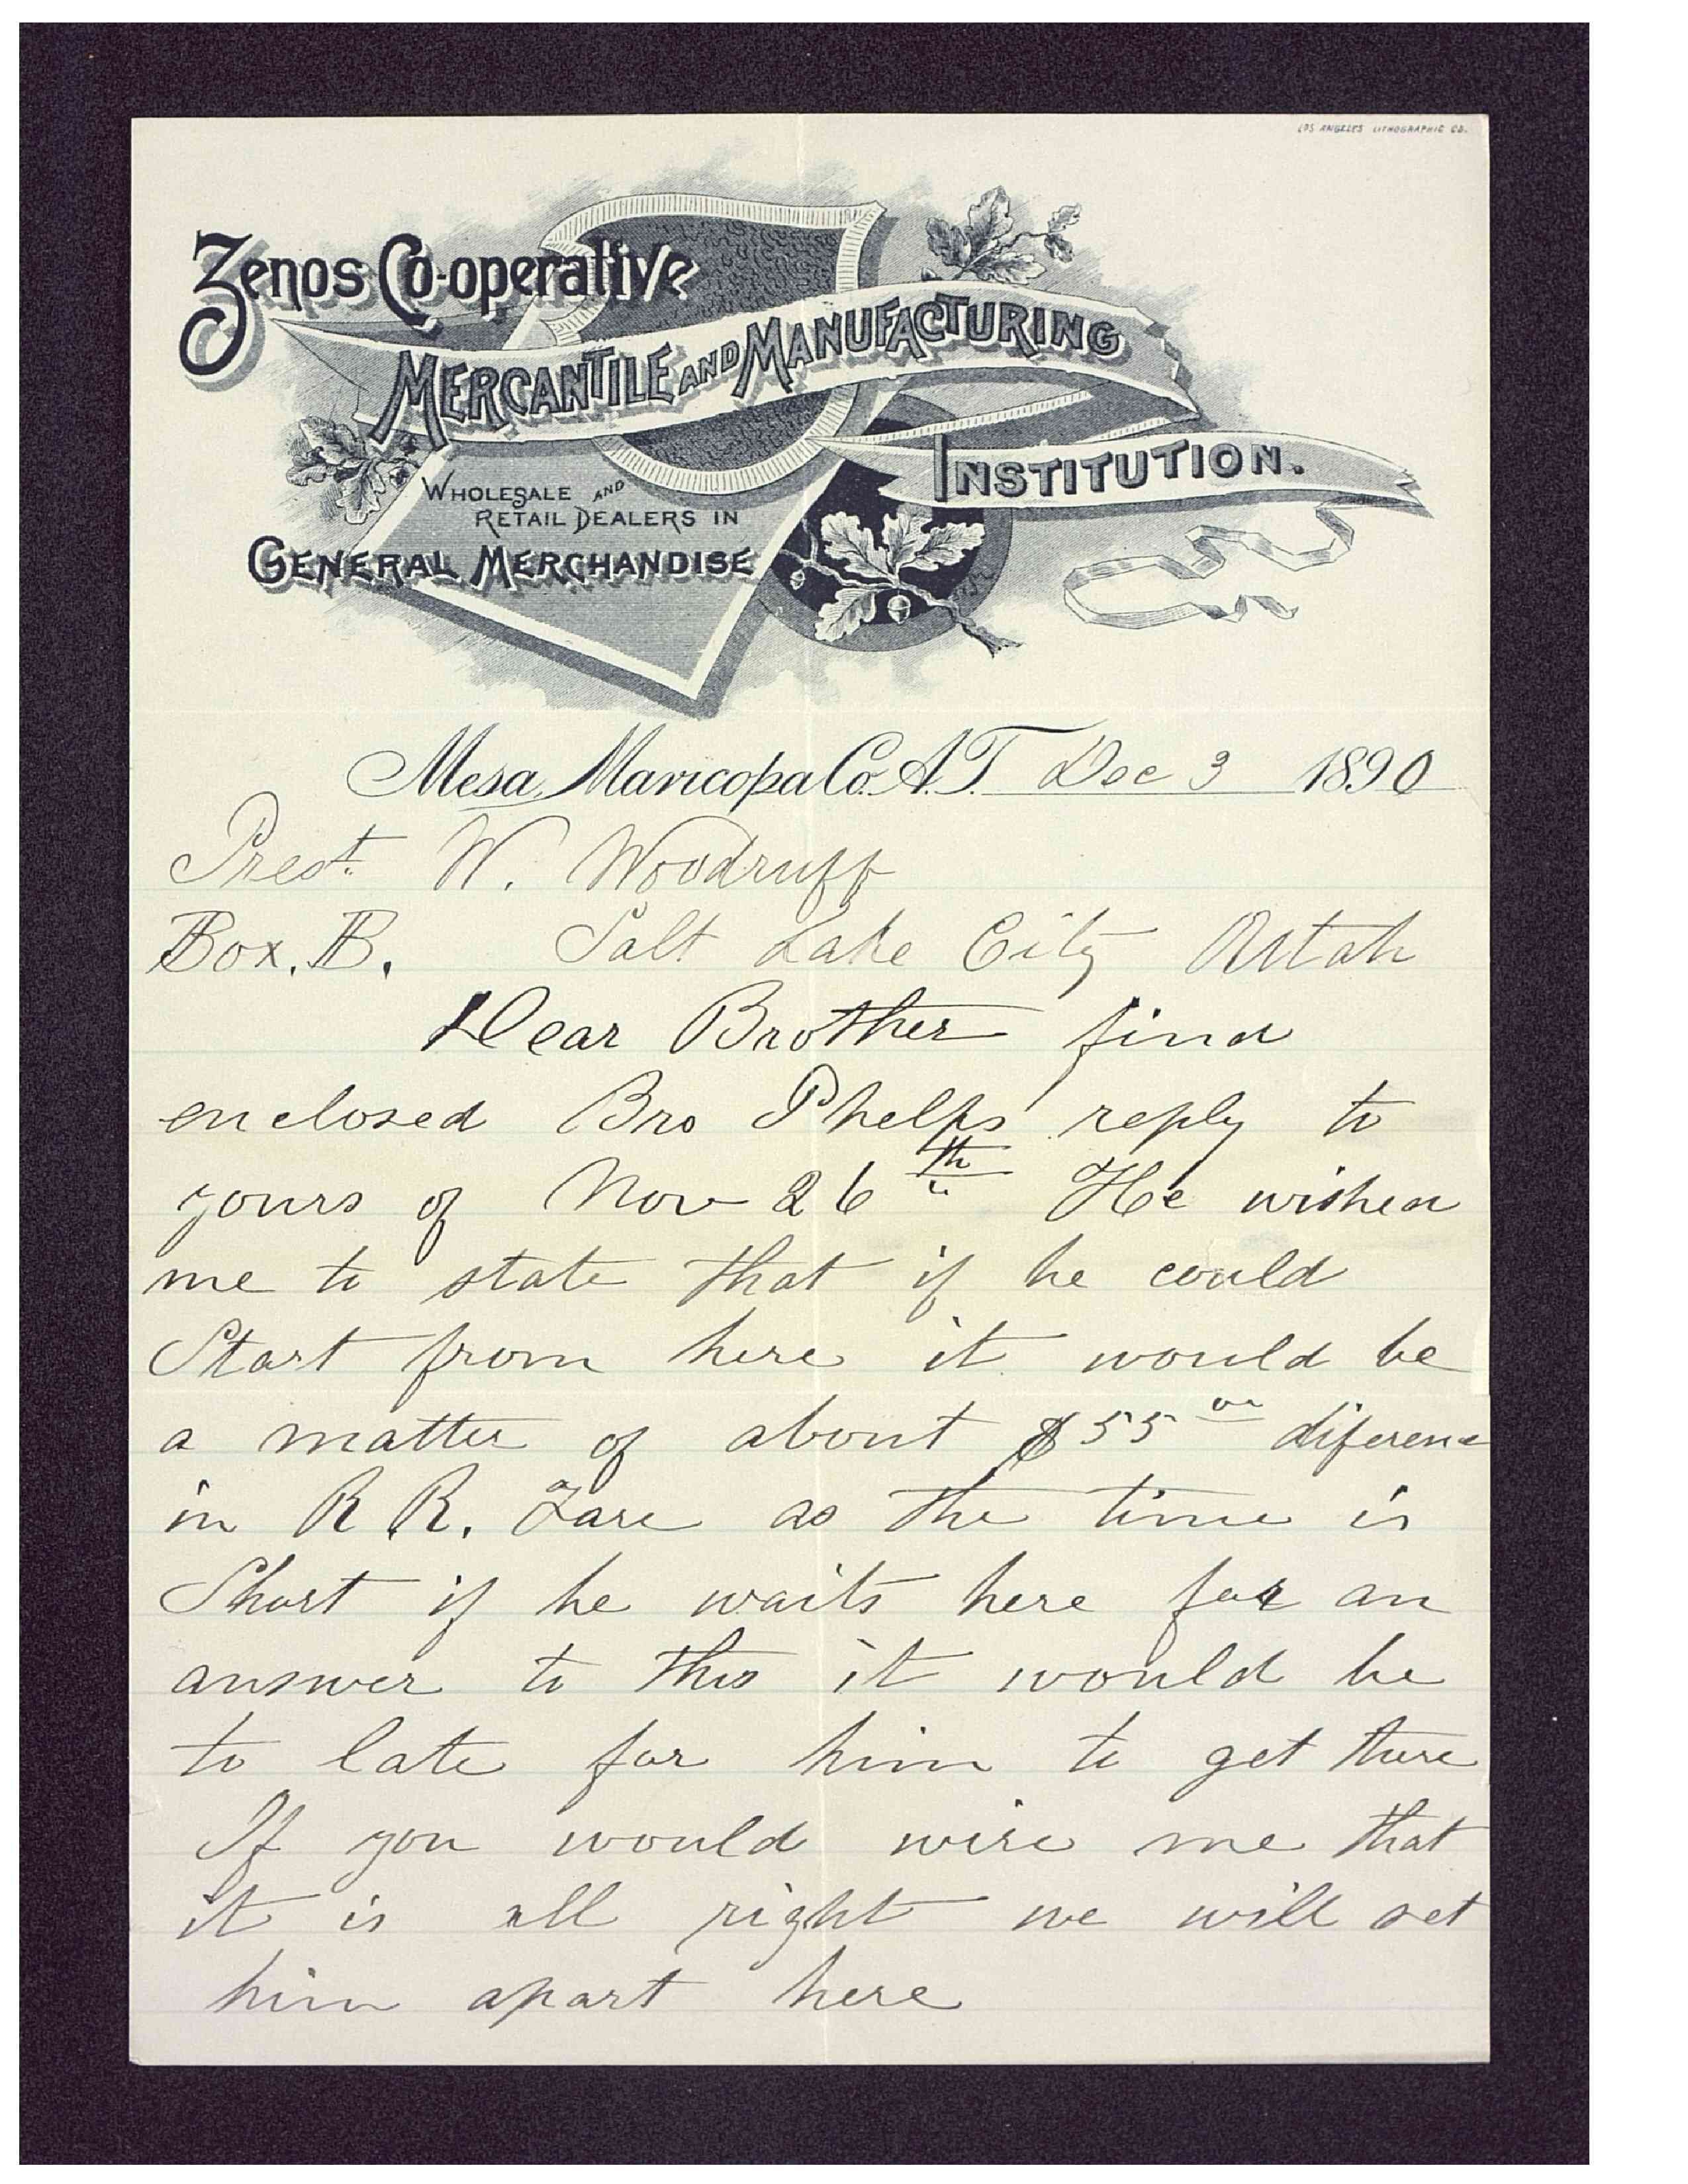 LOS ANGELES LITHOGRAPHIC CO.
Zenos Co-operative
MERCANTILE AND MANUFACTURING
INSTITUTION.
WHOLESALE AND
RETAIL DEALERS IN
GENERAL MERCHANDISE
Mesa, Maricopa Co. A.T. Dec 3 1890
Prest. W. Woodruff
Box. B. Salt Lake City Utah
Dear Brother find
enclosed Bro Phelps' reply to
yours of Nov 26th He wished
me to state that if he could
Start from here it would be
a matter of about $55 00 diference
in R R. Fare as the time is
Short if he waits here for an
answer to this it would be
to late for him to get there
If you would wire me that
it is all right we will set
him apart here